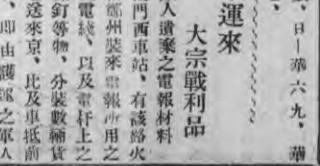 日一華六九、華
運來
大宗戰利品
人遺棄之電報材料
門西車站、有該路火
鄭州裝來電報所用之
電綫、以及電杆上之
釘等物、分裝數輛貨
送來京、比及車抵前
即由護運之軍人